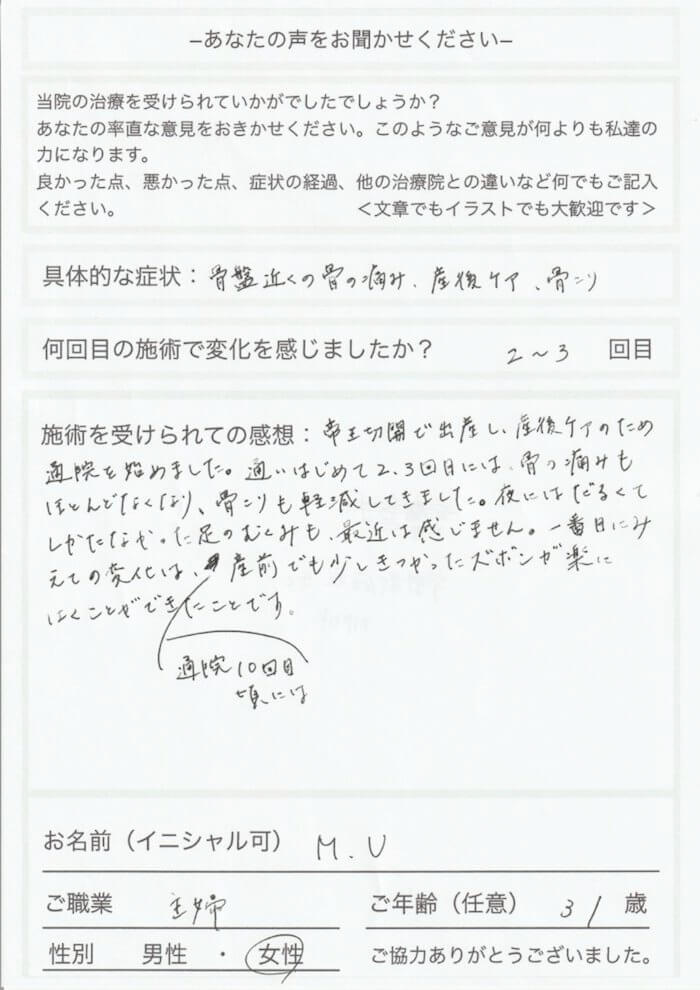 –あなたの声をお聞かせください–
当院の治療を受けられていかがでしたでしょうか？
あなたの率直な意見をおきかせください。このようなご意見が何よりも私達の
力になります。
良かった点、悪かった点、症状の経過、他の治療院との違いなど何でもご記入
ください。　＜文章でもイラストでも大歓迎です＞
具体的な症状：骨盤近くの骨の痛み、産後ケア、骨こり
何回目の施術で変化を感じましたか？ 2〜3 回目
施術を受けられての感想：帝王切開で出産し、産後ケアのため
通院を始めました。通いはじめて2、3回目には、骨の痛みも
ほとんどなくなり、骨こりも軽減してきました。夜にはだるくて
しかたなかった足のむくみも、最近は感じません。一番目にみ
えての変化は、産前でも少しきつかったズボンが楽に
はくことができたことです。
通院10回目
頃には
お名前（イニシャル可） M.U
ご職業 主婦 ご年齢（任意） 31 歳
性別 男性 ・ 女性 ご協力ありがとうございました。